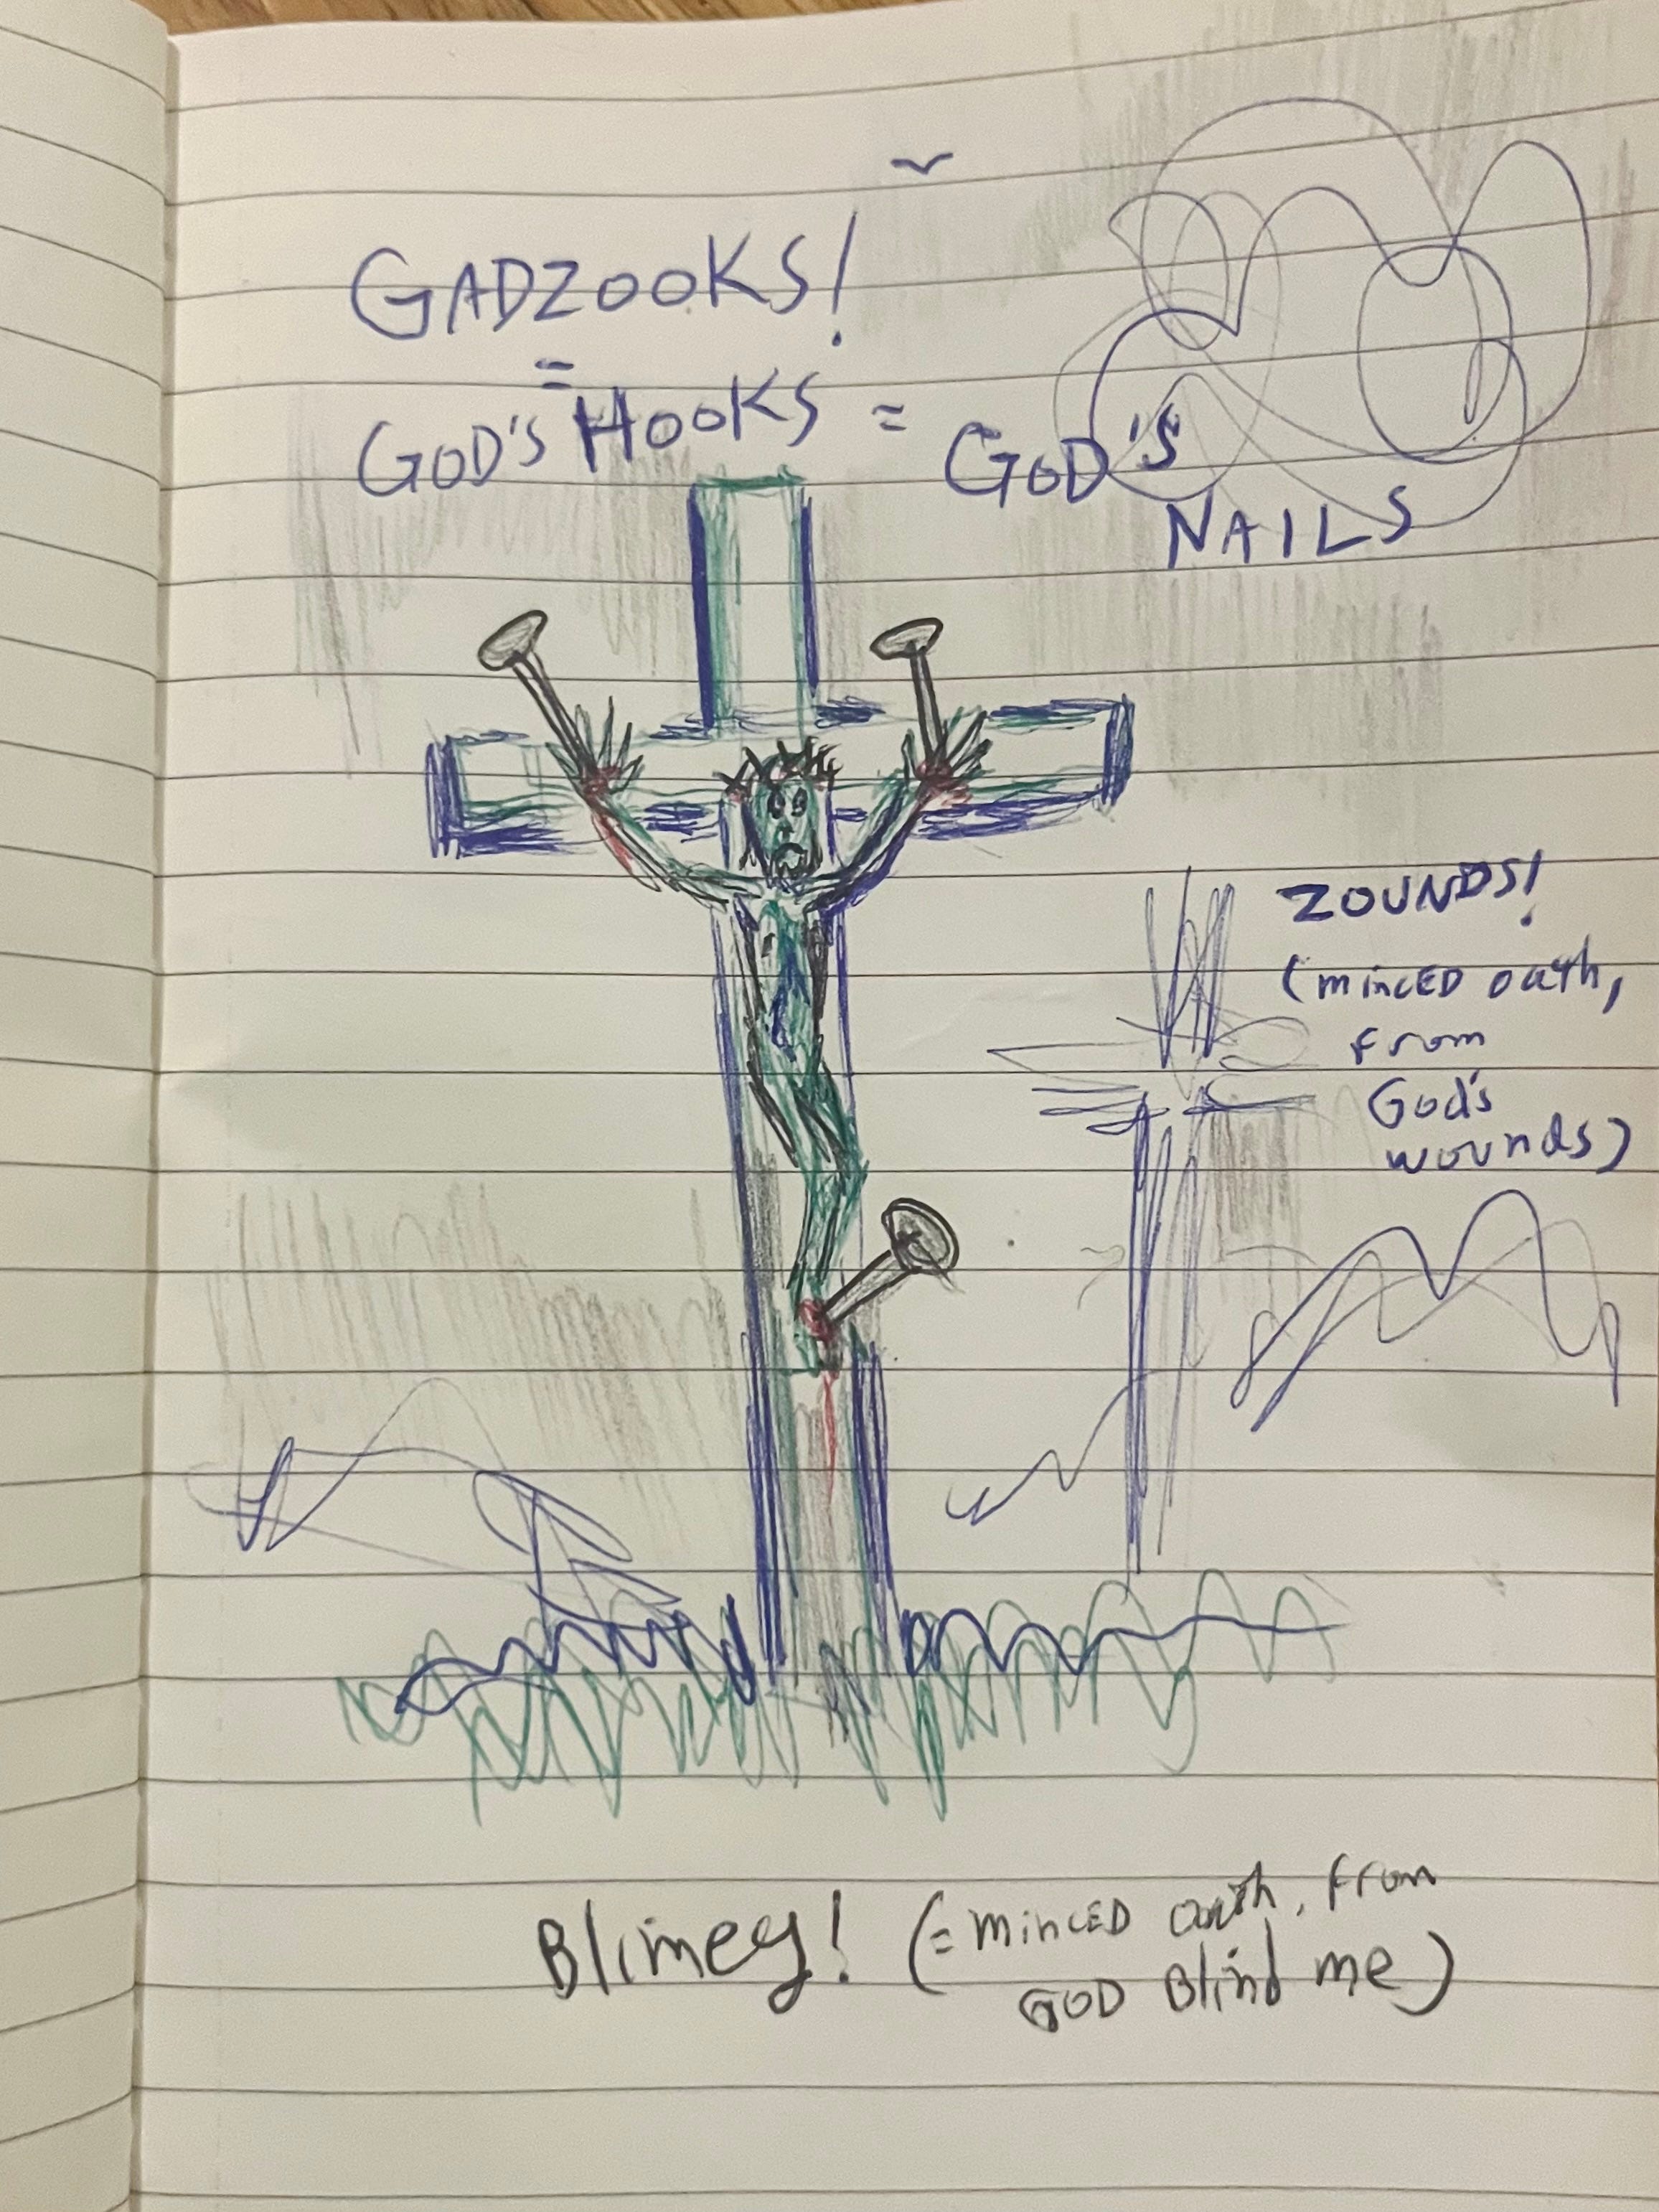 GADZOOKS!
=
GOD'S HOOKS = GOD'S
NAILS
ZOUNDS!
(minCED oath,
from
God's
wounds)
Blimey! (= minCED oath, from
GOD Blind me)